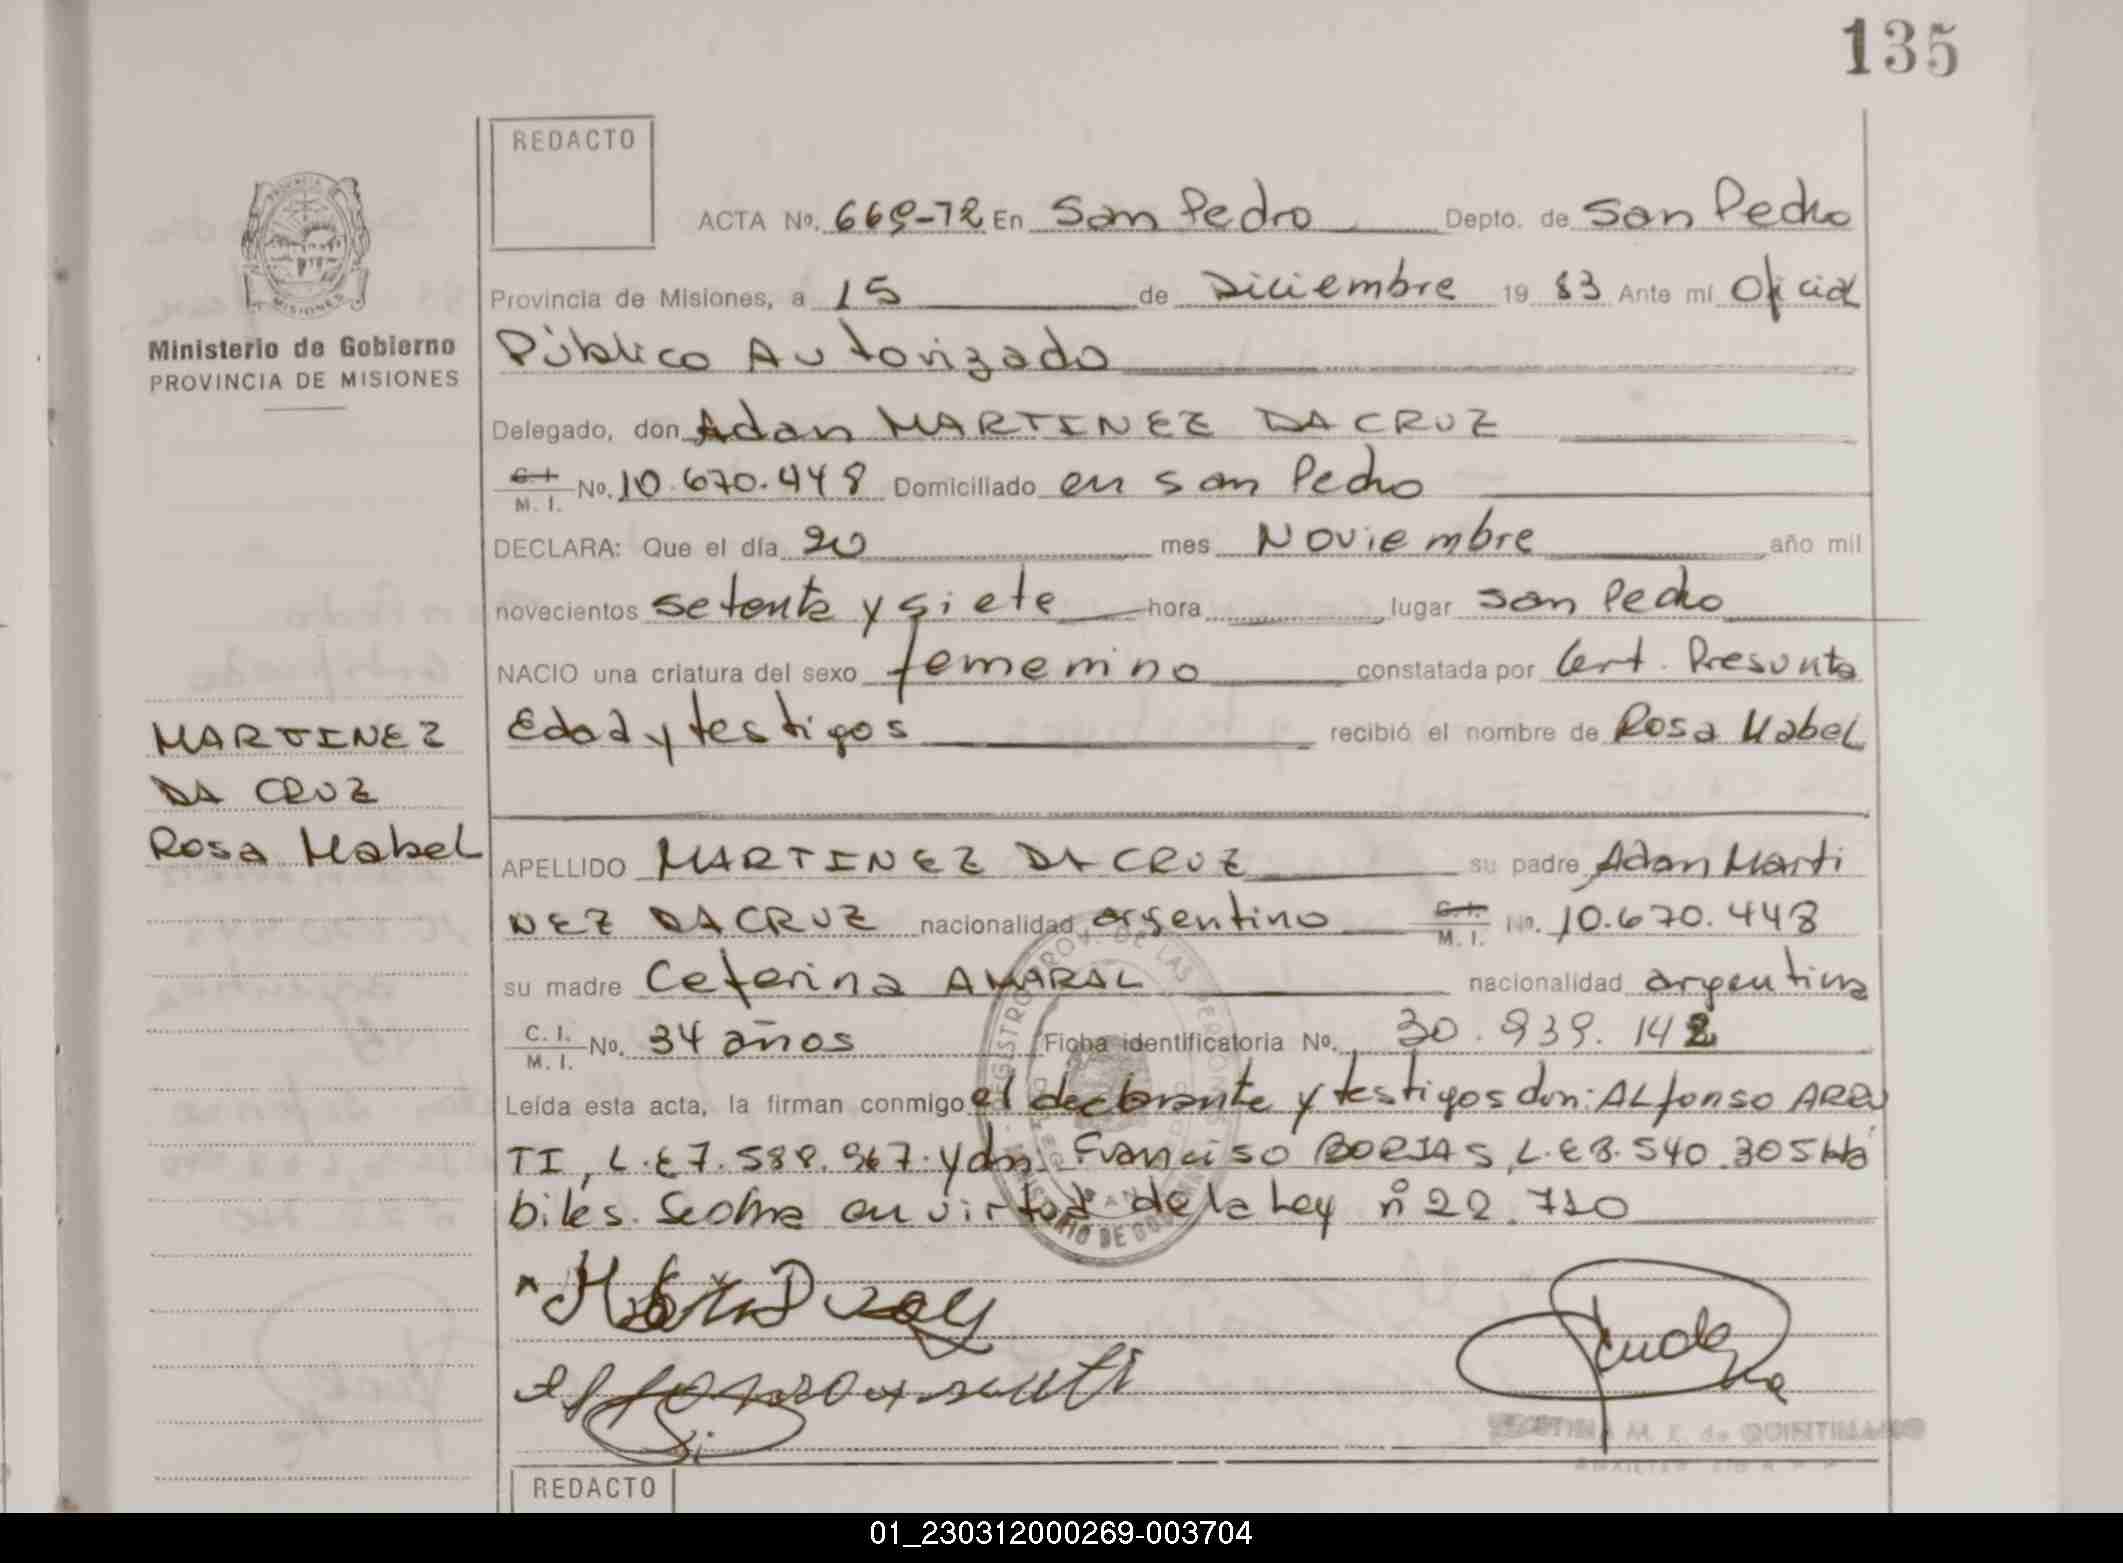 135
REDACTO
ACTA No. 669-72 En San Pedro Depto. de San Pedro
Provincia de Misiones, a 15 de Diciembre 19 83 Ante mí Oficial
Público Autorizado
Delegado, don Adan MARTINEZ DA CRUZ
C.I. M. I. No. 10.670.448 Domiciliado en San Pedro
DECLARA: Que el día 20 mes Noviembre año mil
novecientos setenta y siete hora lugar San Pedro
NACIO una criatura del sexo femenino constatada por Cert. Presunta
Edad y testigos recibió el nombre de Rosa Mabel
APELLIDO MARTINEZ DA CRUZ su padre Adan Marti
NEZ DA CRUZ nacionalidad argentino C.I. M. I. No. 10.670.448
su madre Ceferina AMARAL nacionalidad argentina
C. I. M. I. No. 34 años Ficha identificatoria No. 30.939.142
Leída esta acta, la firman conmigo el declarante y testigos don: ALfonso ARRU
TI, L.E 7.588.967. y don Francisco BORJAS, L.E 8.540.305 Há
biles. Se obra en virtud de la Ley nº 22.710
Ministerio de Gobierno
PROVINCIA DE MISIONES
MARTINEZ
DA CRUZ
Rosa Mabel
M. E. de QUINTILLANO
REDACTO
01_230312000269-003704